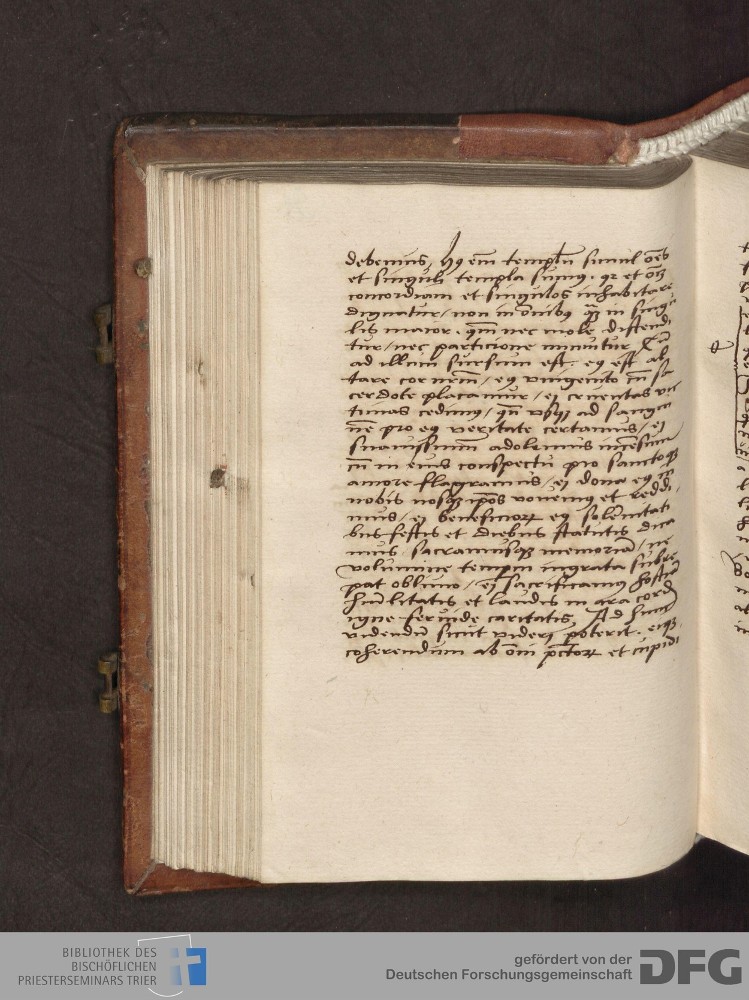 debemus, Hꝯ em̄ templū simul oēs
et singuli templa sumꝯ. qr et oīm
concordiam et singulos inhabitare
dignatur / non in oībus qͣꝫ in singu
lis maior. qm̄ nec mole distendi
tur / nec particione minuitur Cū
ad illum sursum est. eꝯ est al
tare cor nr̄m / eꝯ vnigenito eū sa
cerdote placamur / ei cruentas vic
timas cedimꝯ / qn̄ vsqꝫ ad sangui
nē pro eꝯ veritate certamus / ei
suauissimum adolemus incēsum
cū in eius conspectu pio sanctoqꝫ
amore flagramus / ei dona eꝯ in
nobis nosqꝫ ip̄os vouemꝯ et reddi
mus / ei beneficioꝝ eꝯ solēnitati
bus festis et diebus statutis dica
mus sacramusqꝫ memoriā / ne
volumine temporū ingrata subre
pat obliuio / ei sacrificamꝯ hostiā
hūilitatis et laudis in ara cordis
igne feruide caritatis. Ad hunc
videndū sicut videri poterit. eiqꝫ
coherendum ab oīn pctōꝝ et cupidi
BIBLIOTHEK DES
BISCHÖFLICHEN
PRIESTERSEMINARS TRIER
gefördert von der
Deutschen Forschungsgemeinschaft
DFG